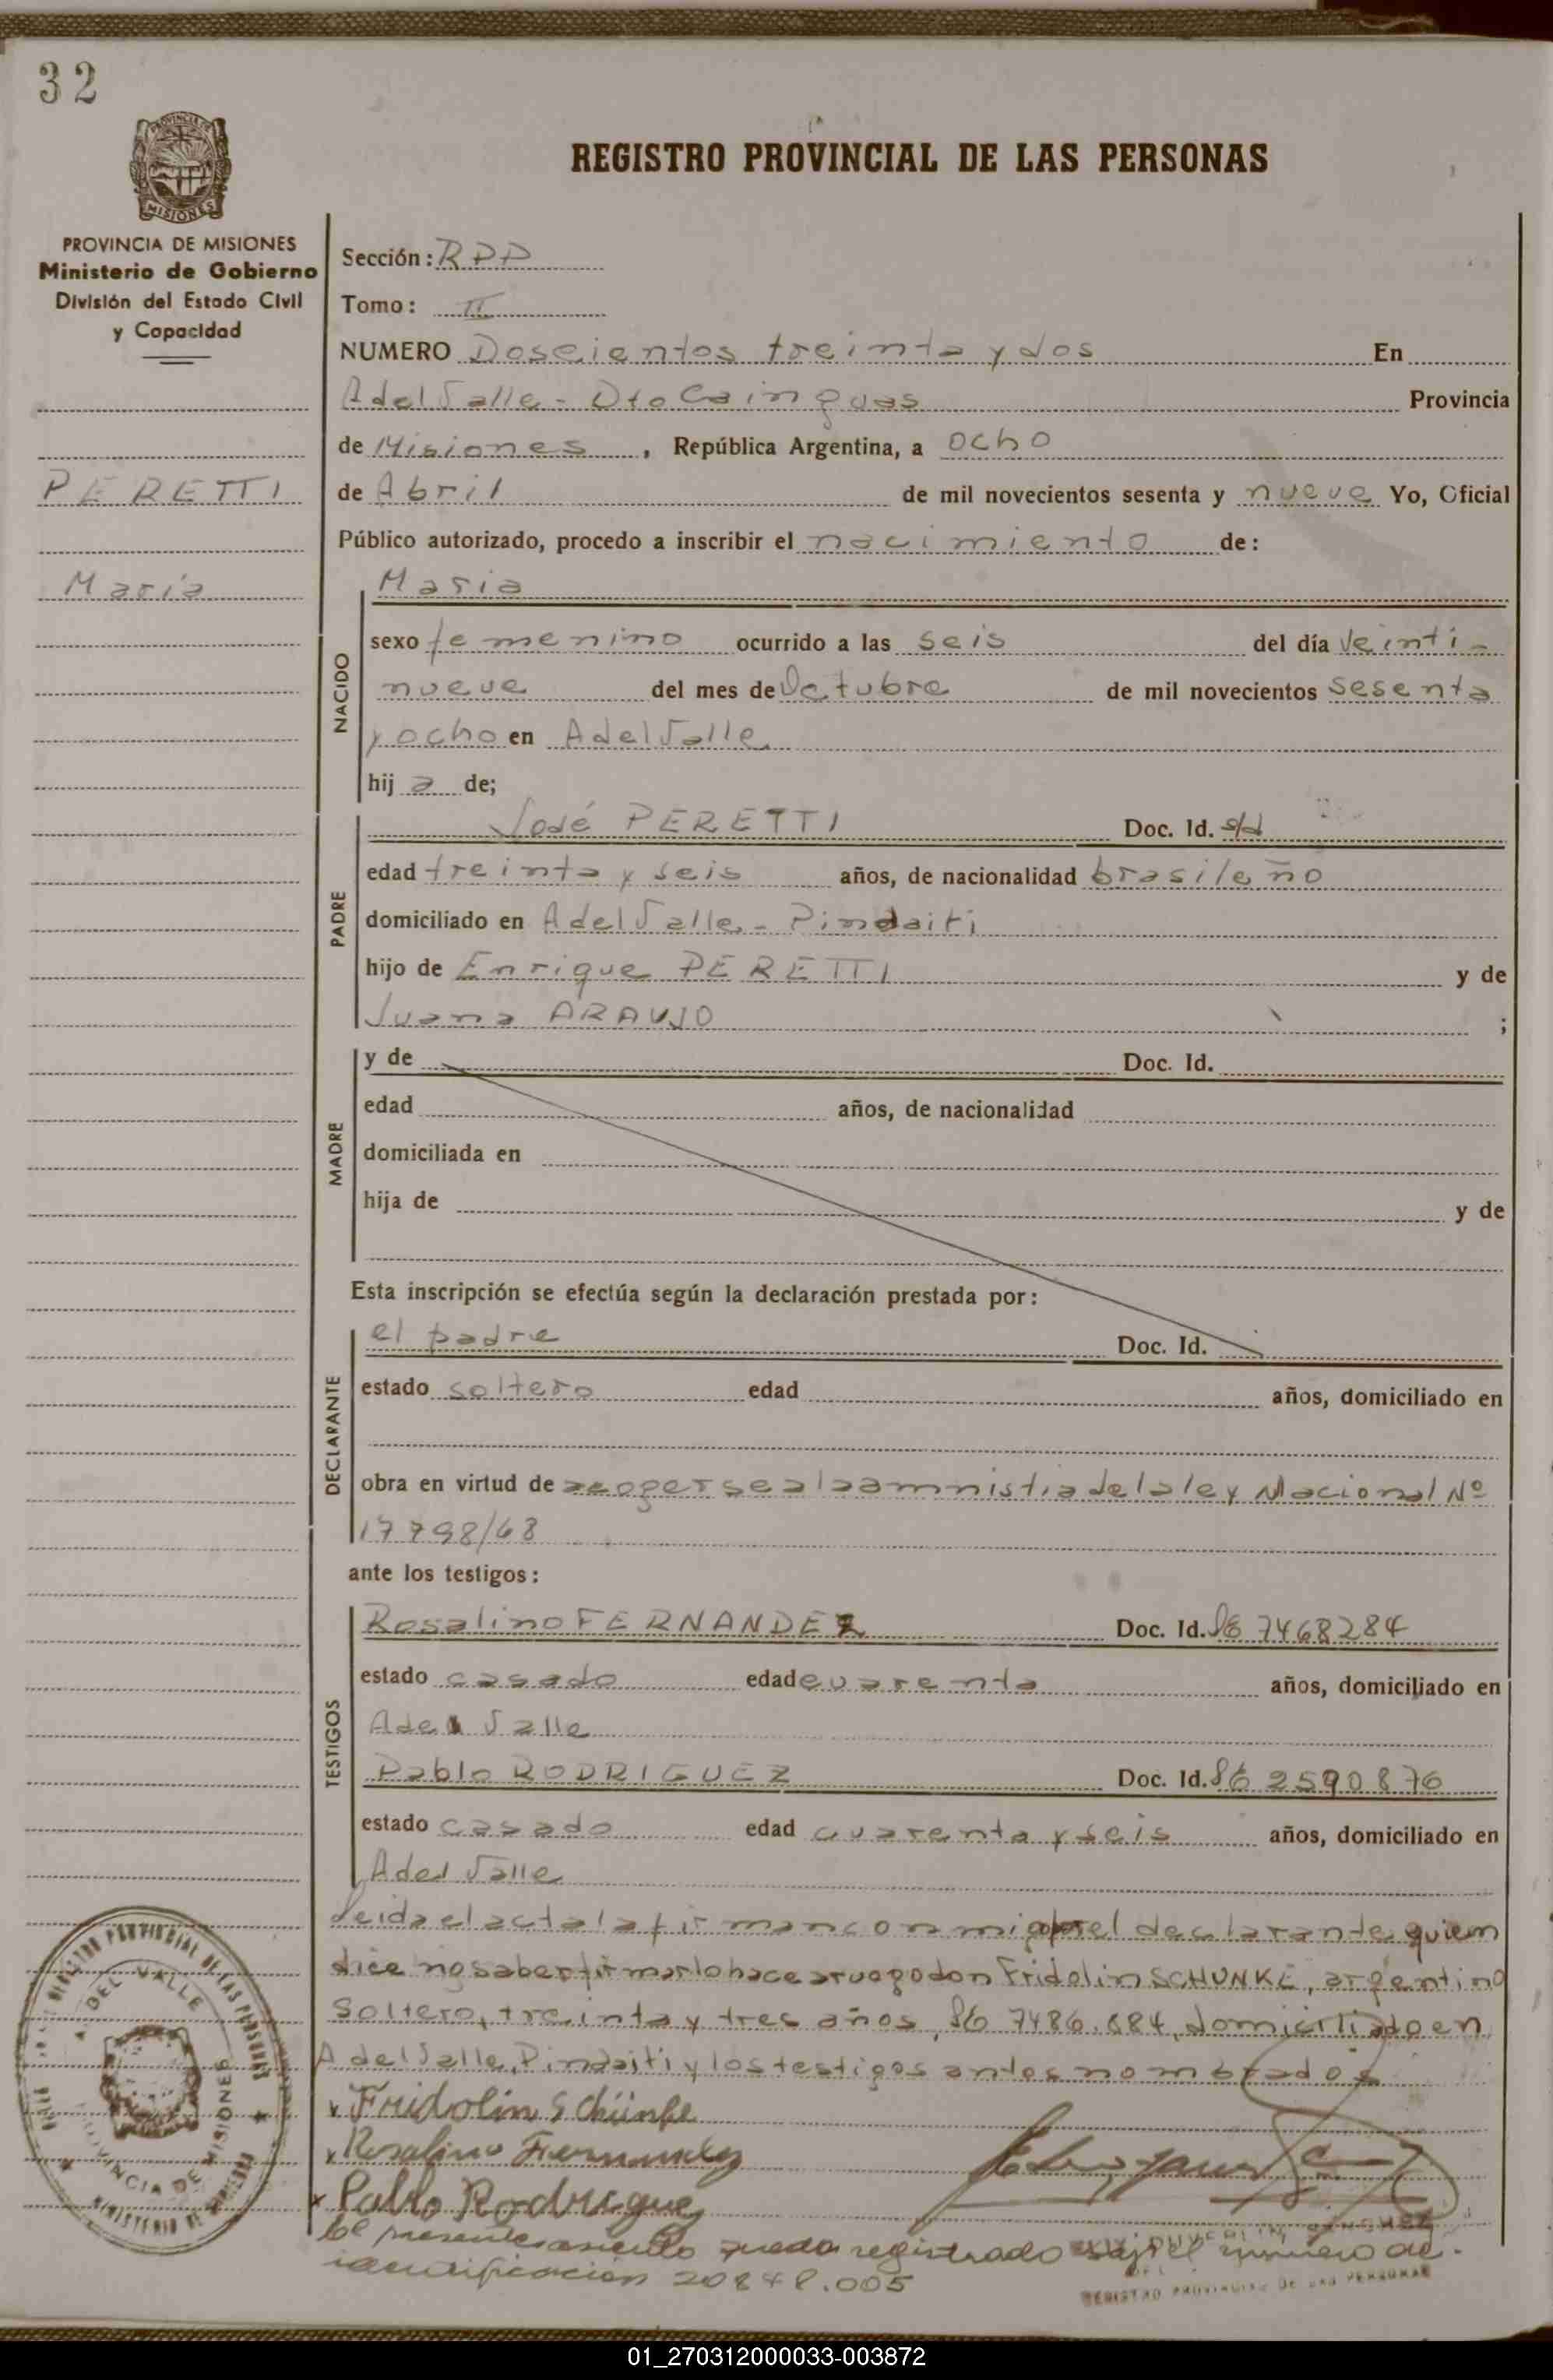 32
REGISTRO PROVINCIAL DE LAS PERSONAS
PROVINCIA DE MISIONES
Ministerio de Gobierno
División del Estado Civil
y Capacidad
PERETTI
Maria
Sección: RPP
Tomo: II
NUMERO Doscientos treinta y dos En
A del Valle - Dto Cainguas Provincia
de Misiones, República Argentina, a ocho
de Abril de mil novecientos sesenta y nueve Yo, Oficial
Público autorizado, procedo a inscribir el nacimiento de:
NACIDO
Maria
sexo femenino ocurrido a las seis del día veinti-
nueve del mes de Octubre de mil novecientos sesenta
y ocho en A del Valle
hija de;
PADRE
José PERETTI Doc. Id. s/d
edad treinta y seis años, de nacionalidad brasileño
domiciliado en A del Valle - Pindaiti
hijo de Enrique PERETTI y de
Juana ARAUJO ;
MADRE
y de Doc. Id.
edad años, de nacionalidad
domiciliada en
hija de y de
Esta inscripción se efectúa según la declaración prestada por:
DECLARANTE
el padre Doc. Id.
estado soltero edad años, domiciliado en
obra en virtud de acogerse a la amnistia de la ley Nacional Nº
17798/68
ante los testigos:
TESTIGOS
Rosalino FERNANDEZ Doc. Id. 7468284
estado casado edad cuarenta años, domiciliado en
A del Valle
Pablo RODRIGUEZ Doc. Id. 2590876
estado casado edad cuarenta y seis años, domiciliado en
A del Valle
Leida el acta la firman con migo por el declarante quien
dice no saber firmar lo hace a ruego don Fridolin SCHUNKE, argentino
soltero, treinta y tres años, 7486.684, domiciliado en
A del Valle, Pindaiti y los testigos antes nombrados
Fridolin Schünke
Rosalino Fernandez
Pablo Rodriguez
El presente asiento queda registrado bajo el numero de
identificacion 20848.005
REGISTRO PROVINCIAL DE LAS PERSONAS
A. DEL VALLE
PROVINCIA DE MISIONES
MINISTERIO DE GOBIERNO
REGISTRO PROVINCIAL DE LAS PERSONAS
01_270312000033-003872